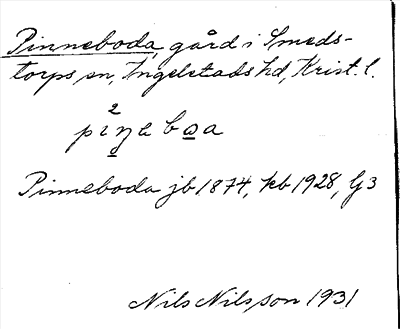 Pinneboda, gård i Smeds-
torps sn, Ingelstads hd, Krist. l.
Pinneboda jb 1874, kb 1928, G 3
Nils Nilsson 1931